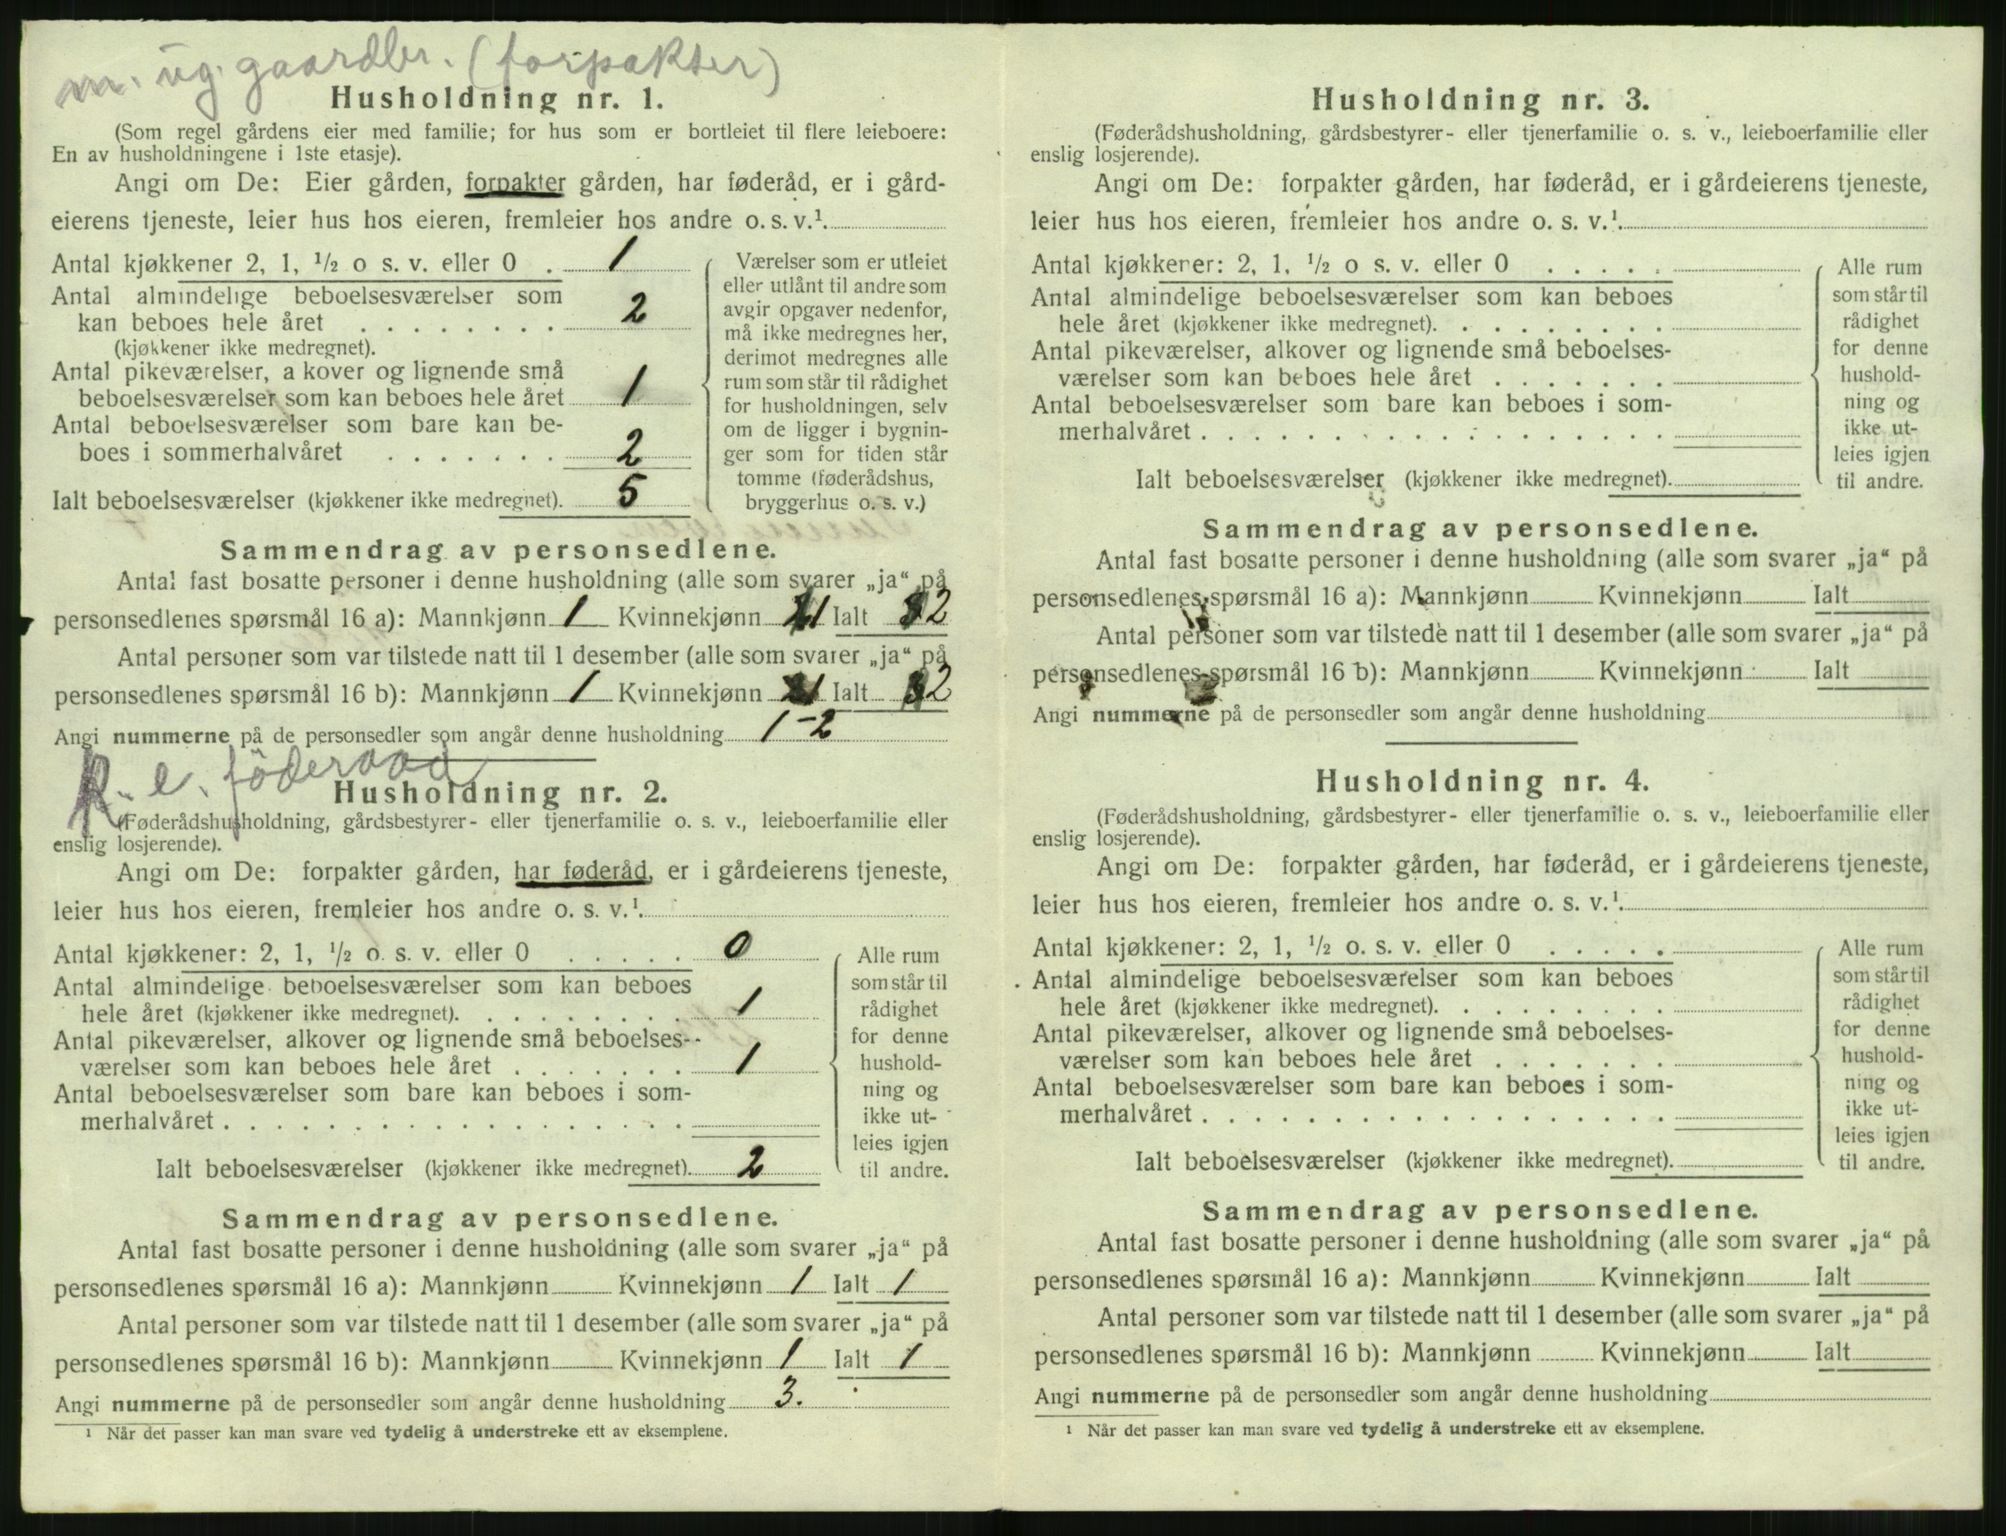 m. ug. gaardbr. (forpakter)
Husholdning nr. 1.
(Som regel gårdens eier med familie; for hus som er bortleiet til flere leieboere:
En av husholdningene i 1ste etasje).
Angi om De: Eier gården, forpakter gården, har føderåd, er i gård-
eierens tjeneste, leier hus hos eieren, fremleier hos andre o. s. v.¹
Antal kjøkkener 2, 1, ½ o s. v. eller 0 . 1
Antal almindelige beboelsesværelser som
kan beboes hele året . . . . . . . . 2
(kjøkkener ikke medregnet).
Antal pikeværelser, a kover og lignende små
beboelsesværelser som kan beboes hele året 1
Antal beboelsesværelser som bare kan be-
boes i sommerhalvåret . . . . . . . 2
Ialt beboelsesværelser (kjøkkener ikke medregnet). 5
Værelser som er utleiet
eller utlånt til andre som
avgir opgaver nedenfor,
må ikke medregnes her,
derimot medregnes alle
rum som står til rådighet
for husholdningen, selv
om de ligger i bygnin-
ger som for tiden står
tomme (føderådshus,
bryggerhus o. s. v.)
Sammendrag av personsedlene.
Antal fast bosatte personer i denne husholdning (alle som svarer „ja“ på
personsedlenes spørsmål 16 a): Mannkjønn 1 Kvinnekjønn 1 Ialt 2
Antal personer som var tilstede natt til 1 desember (alle som svarer „ja“ på
personsedlenes spørsmål 16 b): Mannkjønn 1 Kvinnekjønn 1 Ialt 2
Angi nummerne på de personsedler som angår denne husholdning 1-2
R. e. föderaad
Husholdning nr. 2.
(Føderådshusholdning, gårdsbestyrer- eller tjenerfamilie o. s. v., leieboerfamilie eller
enslig losjerende).
Angi om De: forpakter gården, har føderåd, er i gårdeierens tjeneste,
leier hus hos eieren, fremleier hos andre o. s. v.¹
Antal kjøkkener: 2, 1, ½ o. s. v. eller 0 . . . . . 0
Antal almindelige beboelsesværelser som kan beboes
hele året (kjøkkener ikke medregnet). . . . . . . . . 1
Antal pikeværelser, alkover og lignende små beboelses-
værelser som kan beboes hele året . . . . . . . 1
Antal beboelsesværelser som bare kan beboes i som-
merhalvåret . . . . . . . . . . . . . . . . . .
Ialt beboelsesværelser (kjøkkener ikke medregnet). 2
Alle rum
som står til
rådighet
for denne
hushold-
ning og
ikke ut-
leies igjen
til andre.
Sammendrag av personsedlene.
Antal fast bosatte personer i denne husholdning (alle som svarer „ja“ på
personsedlenes spørsmål 16 a): Mannkjønn Kvinnekjønn 1 Ialt 1
Antal personer som var tilstede natt til 1 desember (alle som svarer „ja“ på
personsedlenes spørsmål 16 b): Mannkjønn Kvinnekjønn 1 Ialt 1
Angi nummerne på de personsedler som angår denne husholdning 3.
¹ Når det passer kan man svare ved tydelig å understreke ett av eksemplene.
Husholdning nr. 3.
(Føderådshusholdning, gårdsbestyrer- eller tjenerfamilie o. s. v., leieboerfamilie eller
enslig losjerende).
Angi om De: forpakter gården, har føderåd, er i gårdeierens tjeneste,
leier hus hos eieren, fremleier hos andre o. s. v.¹
Antal kjøkkener: 2, 1, ½ o s. v. eller 0 . . . . .
Antal almindelige beboelsesværelser som kan beboes
hele året (kjøkkener ikke medregnet). . . . . . . . .
Antal pikeværelser, alkover og lignende små beboelses-
værelser som kan beboes hele året . . . . . . .
Antal beboelsesværelser som bare kan beboes i som-
merhalvåret . . . . . . . . . . . . . . . . . .
Ialt beboelsesværelser (kjøkkener ikke medregnet).
Alle rum
som står til
rådighet
for denne
hushold-
ning og
ikke ut-
leies igjen
til andre.
Sammendrag av personsedlene.
Antal fast bosatte personer i denne husholdning (alle som svarer „ja“ på
personsedlenes spørsmål 16 a): Mannkjønn Kvinnekjønn Ialt
Antal personer som var tilstede natt til 1 desember (alle som svarer „ja“ på
personsedlenes spørsmål 16 b): Mannkjønn Kvinnekjønn Ialt
Angi nummerne på de personsedler som angår denne husholdning
Husholdning nr. 4.
(Føderådshusholdning, gårdsbestyrer- eller tjenerfamilie o. s. v., leieboerfamilie eller
enslig losjerende).
Angi om De: forpakter gården, har føderåd, er i gårdeierens tjeneste,
leier hus hos eieren, fremleier hos andre o. s. v.¹
Antal kjøkkener: 2, 1, ½ o. s. v. eller 0 . . . . .
Antal almindelige beboelsesværelser som kan beboes
hele året (kjøkkener ikke medregnet). . . . . . . . .
Antal pikeværelser, alkover og lignende små beboelses-
værelser som kan beboes hele året . . . . . . .
Antal beboelsesværelser som bare kan beboes i som-
merhalvåret . . . . . . . . . . . . . . . . . .
Ialt beboelsesværelser (kjøkkener ikke medregnet).
Alle rum
som står til
rådighet
for denne
hushold-
ning og
ikke ut-
leies igjen
til andre.
Sammendrag av personsedlene.
Antal fast bosatte personer i denne husholdning (alle som svarer „ja“ på
personsedlenes spørsmål 16 a): Mannkjønn Kvinnekjønn Ialt
Antal personer som var tilstede natt til 1 desember (alle som svarer „ja“ på
personsedlenes spørsmål 16 b): Mannkjønn Kvinnekjønn Ialt
Angi nummerne på de personsedler som angår denne husholdning
¹ Når det passer kan man svare ved tydelig å understreke ett av eksemplene.